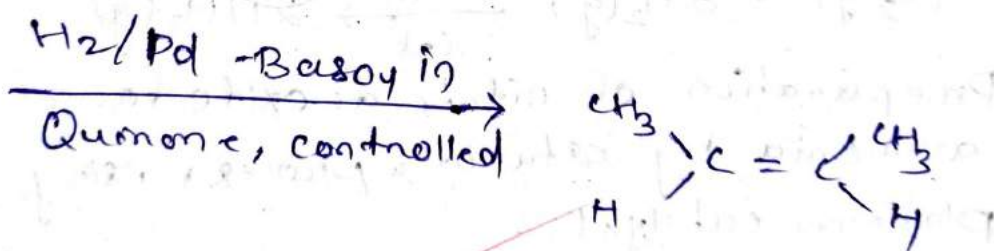 H2/Pd -BaSO4 in
Quinone, controlled
CH3 CH3
C = C
H H